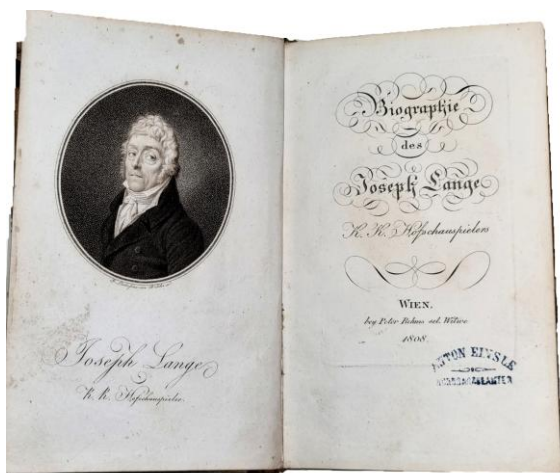 Joseph Lange
K. K. Hofschauspieler.
Biographie
des
Joseph Lange
K. K. Hofschauspielers
WIEN.
bey Peter Rehms sel. Witwe
1808.
ANTON EINSLE